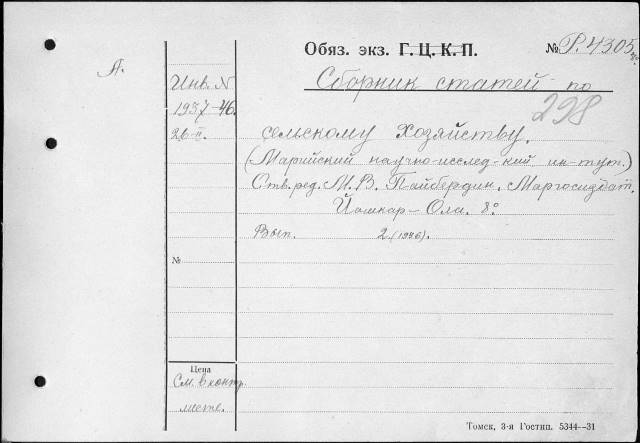 Обяз. экз. Г. Ц. К. П. № Р. 4305
А.
Инв. N
1937-46.
26-II.
Сборник статей по
298
сельскому хозяйству.
(Марийский научно-исслед-кий ин-тут.)
Отв. ред. М. В. Пайбердин. Маргосиздат.
Йошкар-Ола. 8°.
Вып. 2. (1946).
№
Цена
См. в контр.
листе.
Томск, 3-я Гостип. 5344—31